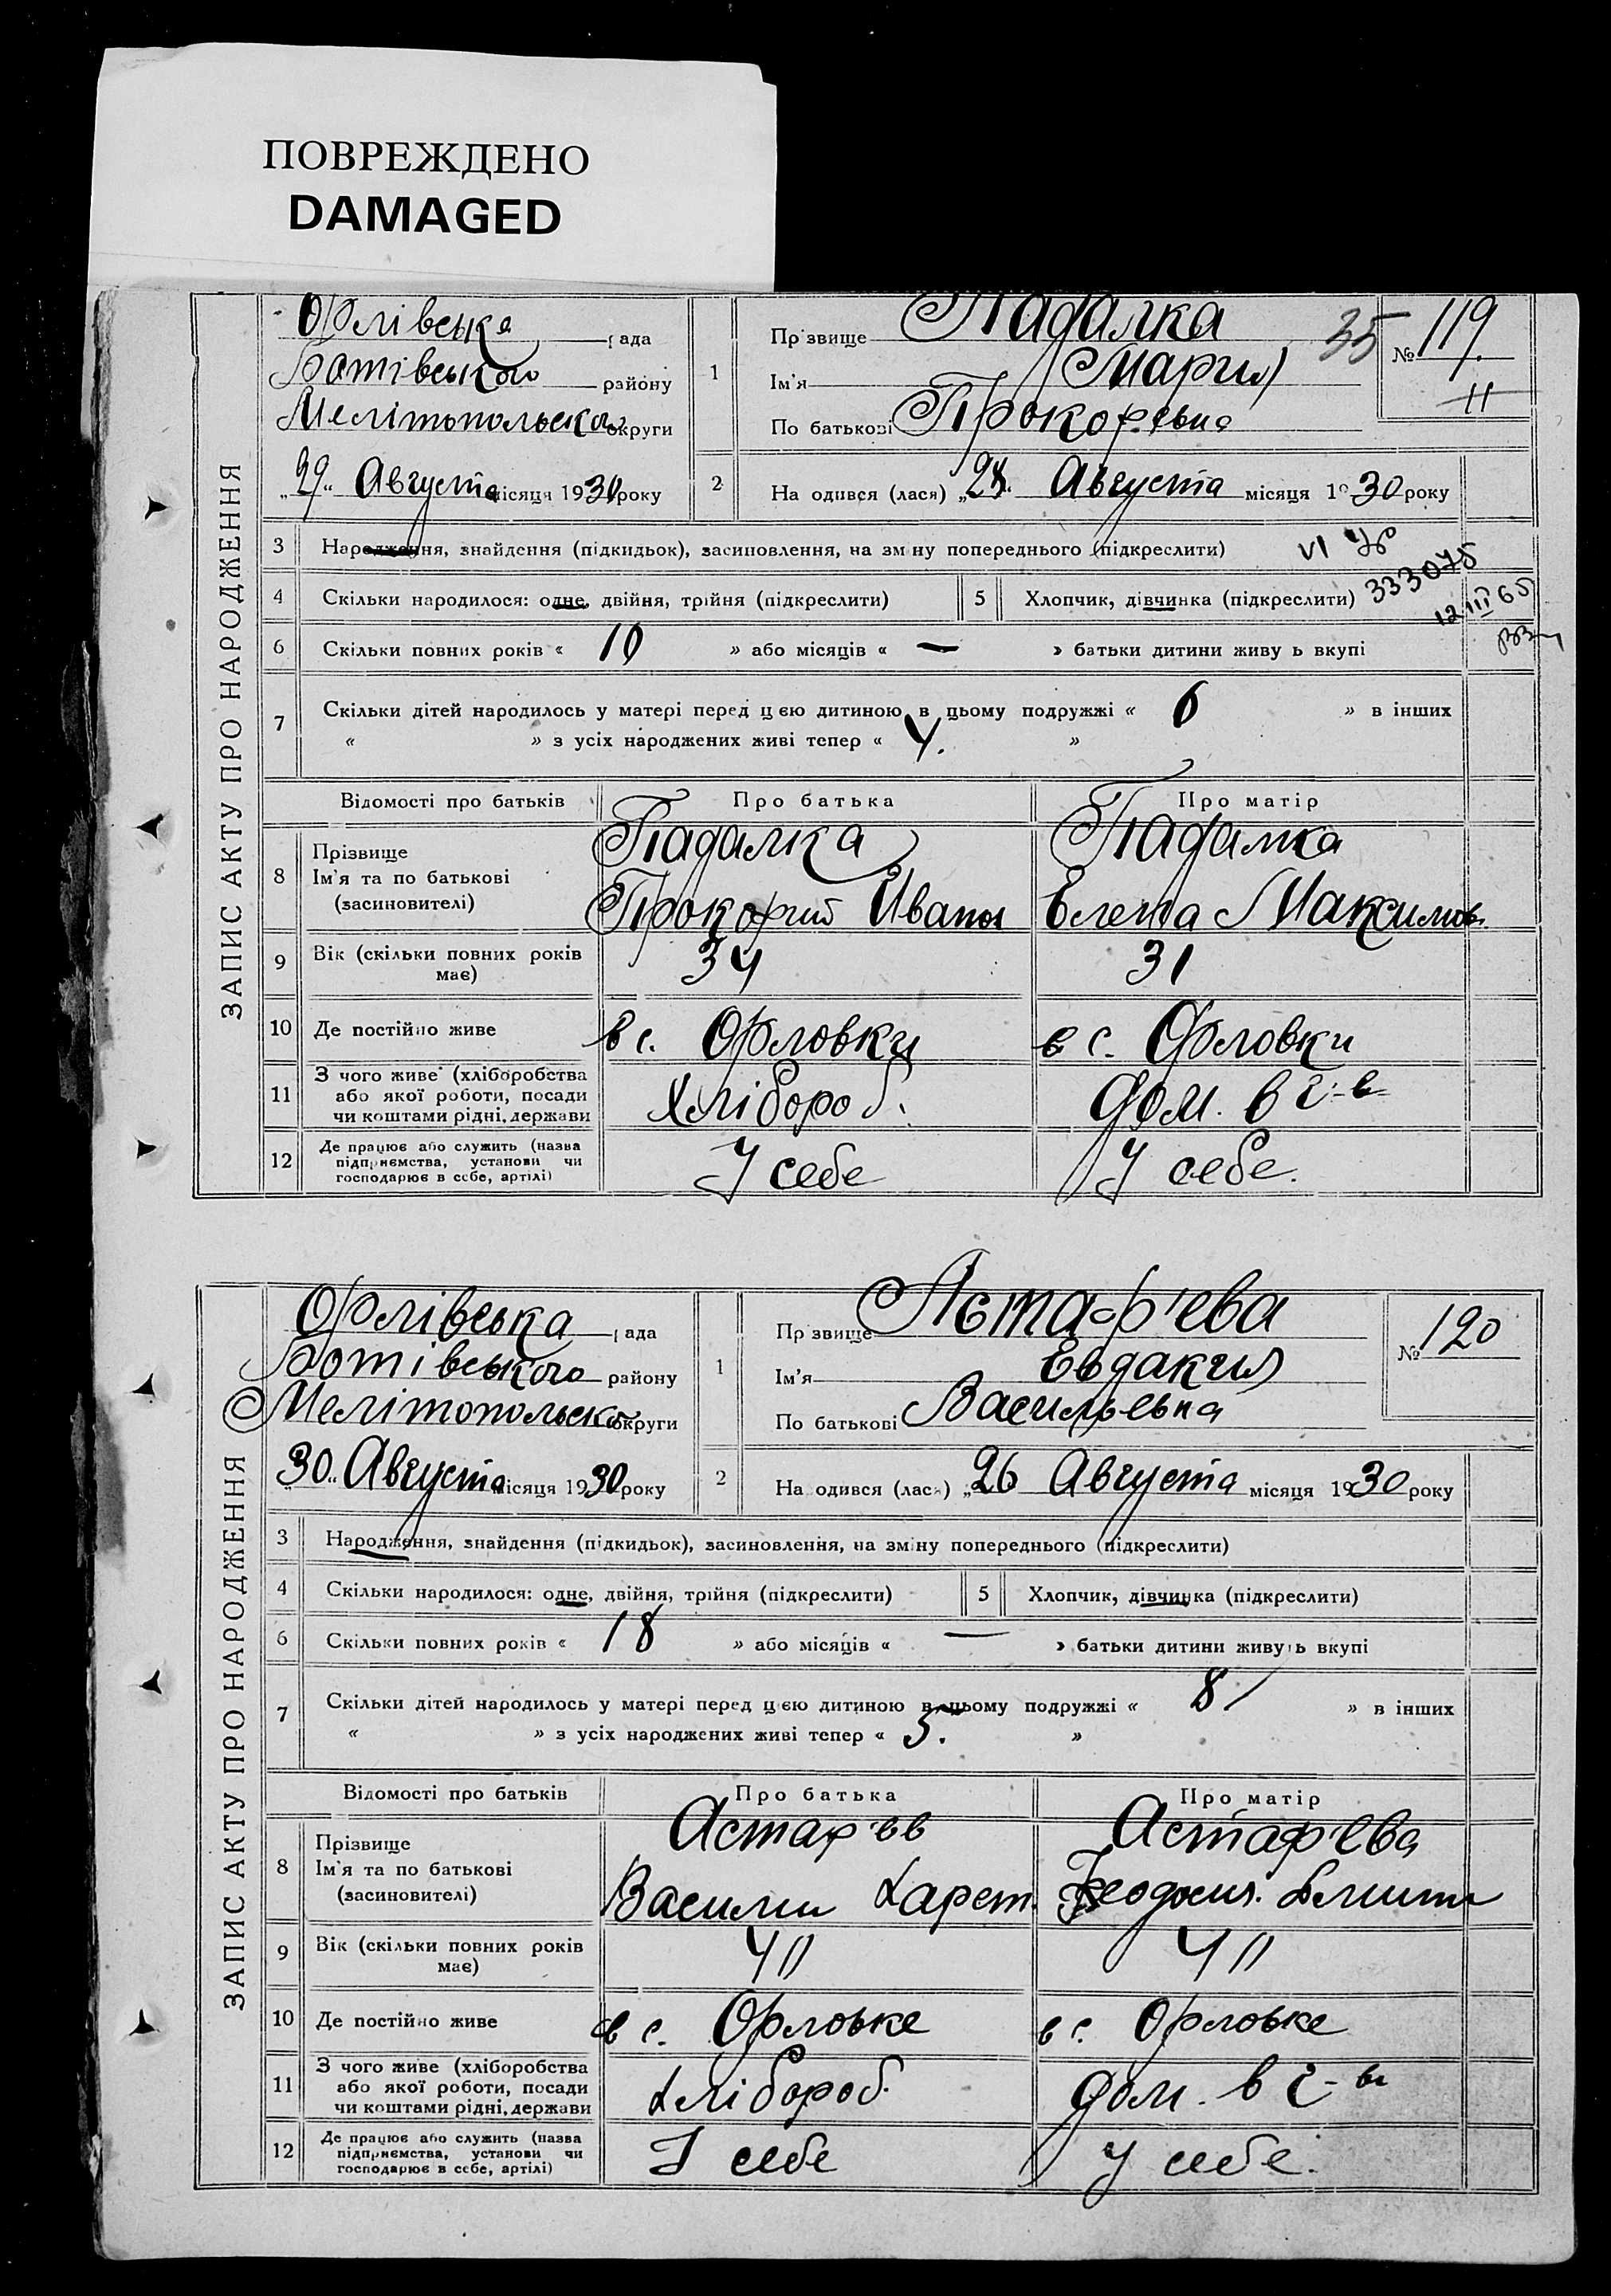 ПОВРЕЖДЕНО
DAMAGED
ЗАПИС АКТУ ПРО НАРОДЖЕННЯ
Орлівська рада
Ботівського району
Мелітопольсько округи
„29„ Августа місяця 1930 року
1
Прізвище Падалка
35
№ 119
Ім'я Мария
11
По батькові Прокофевна
2 На одився (лася) „28. Августа місяця 1930 року
3 Народження, знайдення (підкидьок), засиновлення, на зміну попереднього (підкреслити)
4 Скільки народилося: одне, двійня, трійня (підкреслити)
5 Хлопчик, дівчинка (підкреслити)
333075
12 III 65
6 Скільки повних років « 10 » або місяців « — » батьки дитини живуть вкупі
7 Скільки дітей народилось у матері перед цією дитиною в цьому подружжі « 6 » в інших
« » з усіх народжених живі тепер « 4. »
Відомості про батьків Про батька Про матір
8 Прізвище
Ім'я та по батькові
(засиновителі)
Падалка
Прокофий Иванов
Падалка
Елена Максимов.
9 Вік (скільки повних років має) 34 31
10 Де постійно живе в с. Орловки в с. Орловки
11 З чого живе (хліборобства
або якої роботи, посади
чи коштами рідні, держави
Хлібороб. дом. в г-в
12 Де працює або служить (назва
підприємства, установи чи
господарює в себе, артілі)
У себе У себе.
ЗАПИС АКТУ ПРО НАРОДЖЕННЯ
Орлівська рада
Ботівського району
Мелітопольсько округи
„30„ Августа місяця 1930 року
1
Прізвище Астаф'ева
№ 120
Ім'я Евдакия
По батькові Васильевна
2 На одився (лася) „26 Августа місяця 1930 року
3 Народження, знайдення (підкидьок), засиновлення, на зміну попереднього (підкреслити)
4 Скільки народилося: одне, двійня, трійня (підкреслити)
5 Хлопчик, дівчинка (підкреслити)
6 Скільки повних років « 18 » або місяців « — » батьки дитини живуть вкупі
7 Скільки дітей народилось у матері перед цією дитиною в цьому подружжі « 8 » в інших
« » з усіх народжених живі тепер « 5. »
Відомості про батьків Про батька Про матір
8 Прізвище
Ім'я та по батькові
(засиновителі)
Астаф'ев
Василий Харет.
Астаф'ева
Феодосия.
9 Вік (скільки повних років має) 40 40
10 Де постійно живе в с. Орловке в с. Орловке
11 З чого живе (хліборобства
або якої роботи, посади
чи коштами рідні, держави
Хлібороб. дом. в г-ве
12 Де працює або служить (назва
підприємства, установи чи
господарює в себе, артілі)
У себе У себе.